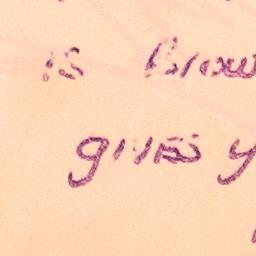 is Brow
gives y